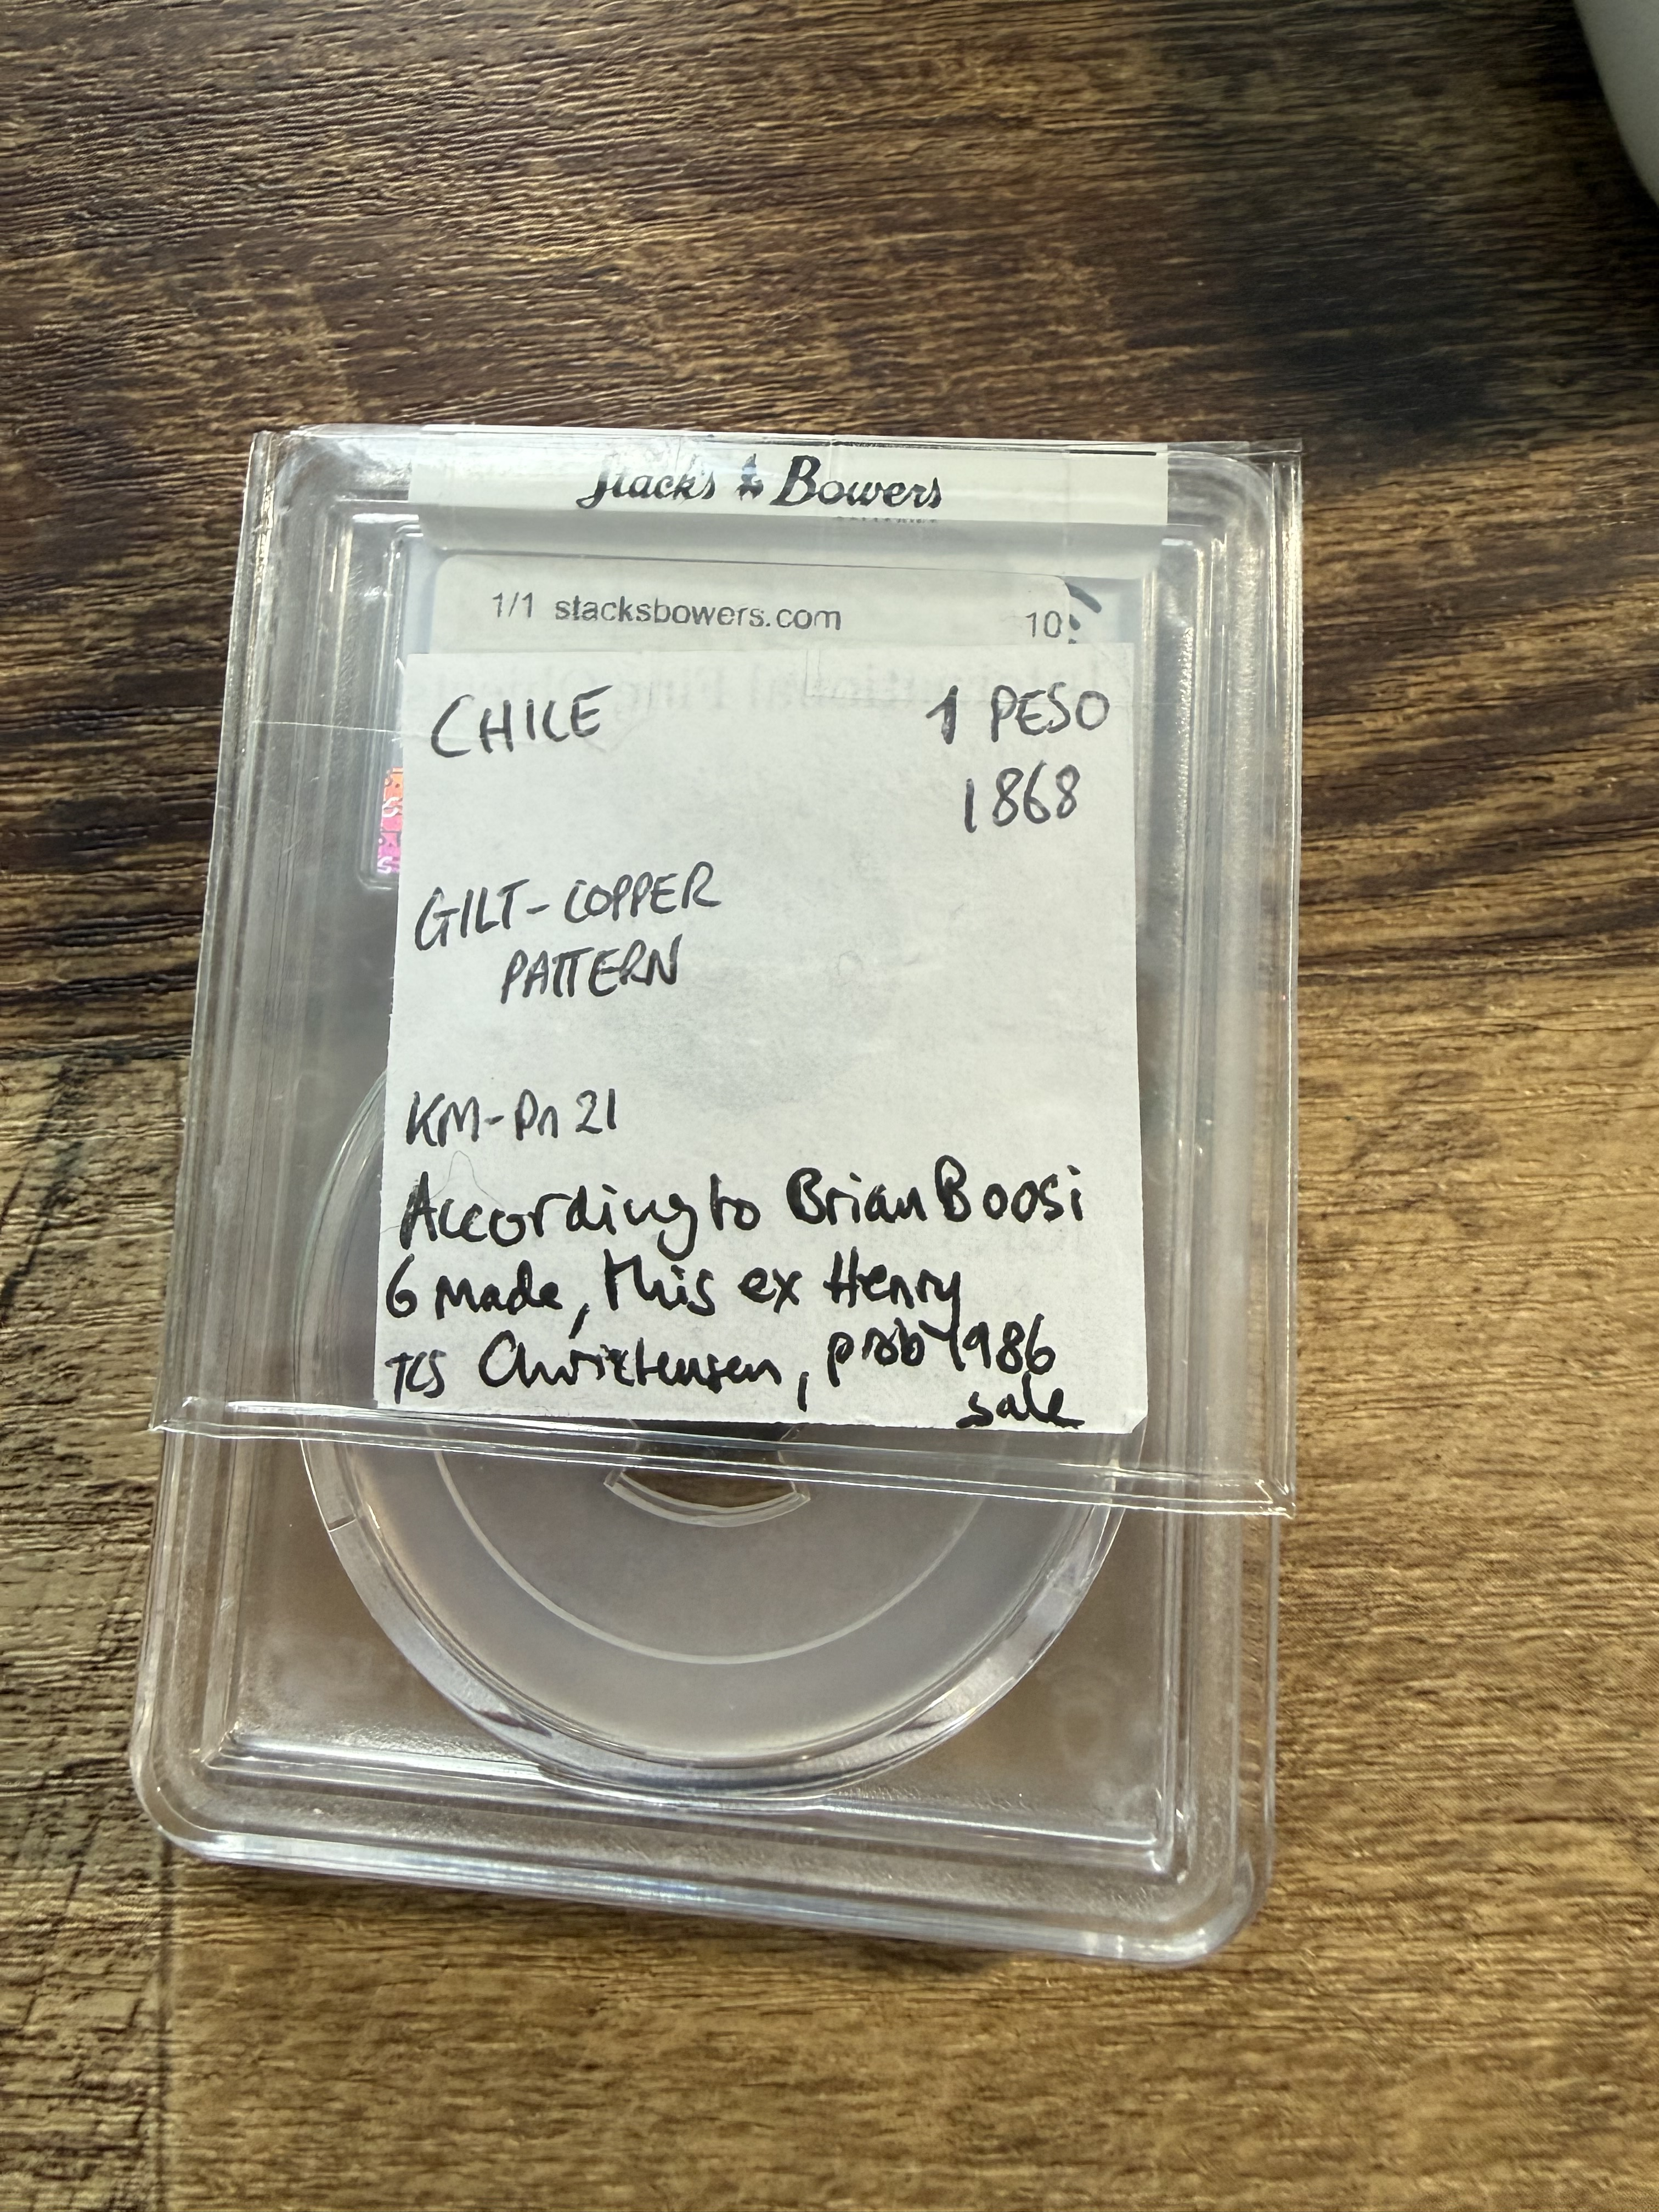 Stacks & Bowers
GALLERIES
1/1 stacksbowers.com 10
CHILE 1 PESO
1868
GILT-COPPER
PATTERN
KM-Pn 21
According to Brian Boosi
6 made, this ex Henry
Christensen, prob 1986
sale